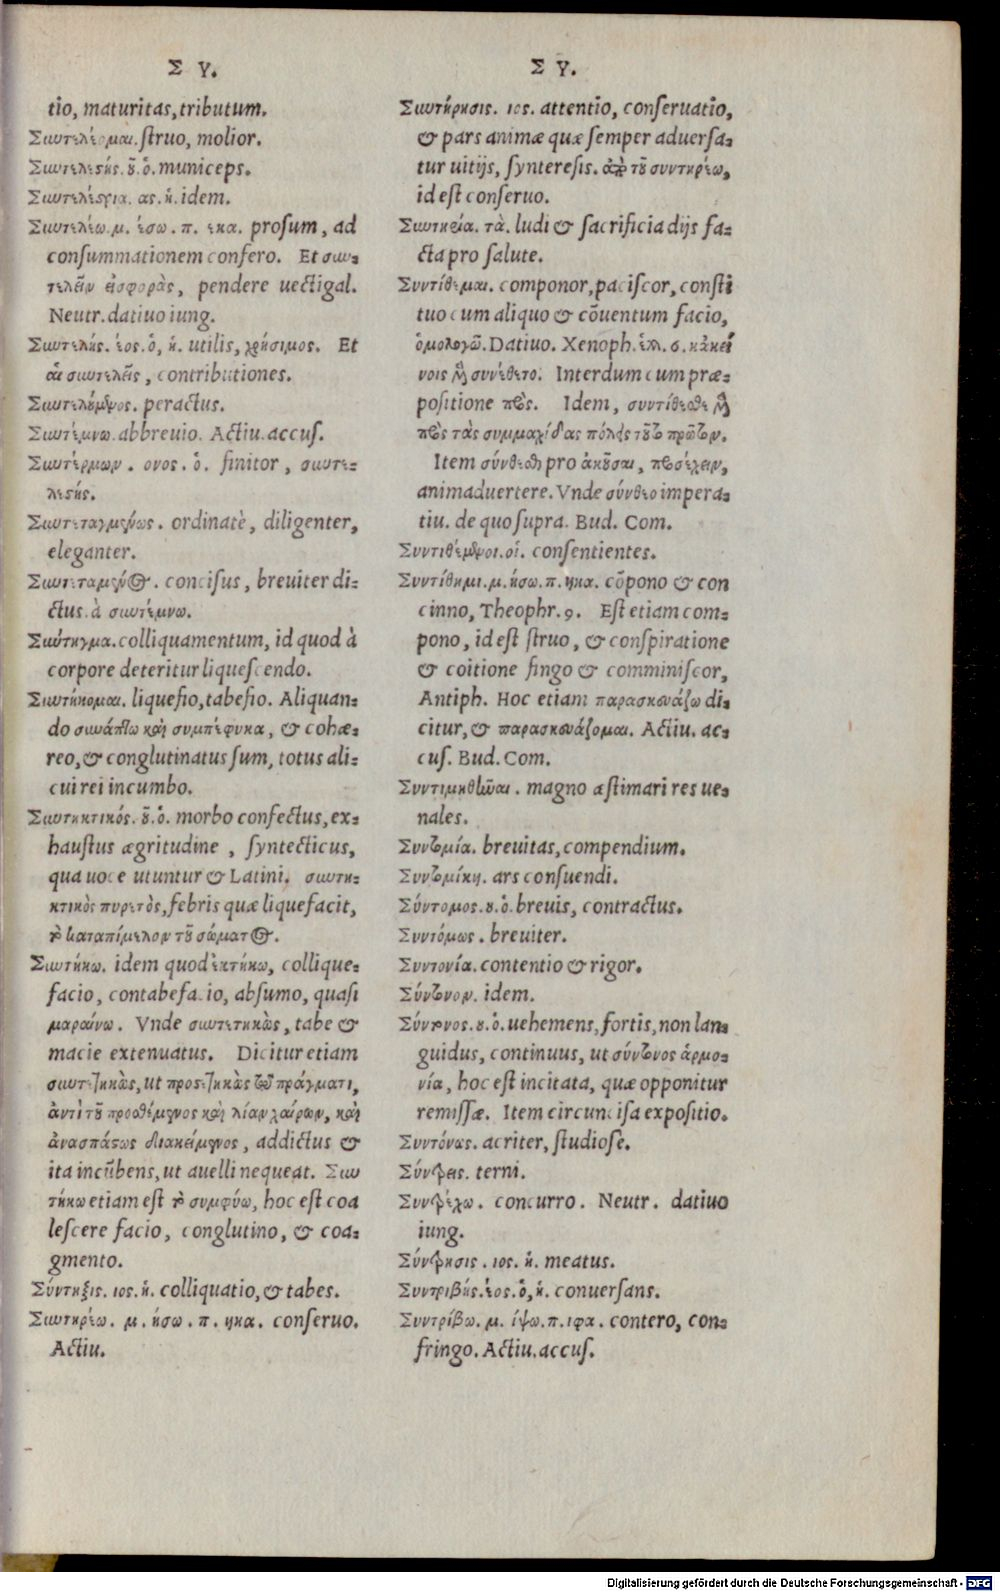 Σ Υ.
tio, maturitas, tributum.
Συντελέομαι. struo, molior.
Συντελεστής. οῦ. ὁ. municeps.
Συντελέστρια. ας. ἡ. idem.
Συντελέω. μ. έσω. π. εκα. prosum, ad
consummationem confero. Et συν-
τελεῖν εἰσφορὰς, pendere uectigal.
Neutr. datiuo iung.
Συντελής. έος. ὁ, ἡ. utilis, χρήσιμος. Et
αἱ συντελεῖς, contributiones.
Συντελούμενος. peractus.
Συντέμνω. abbreuio. Actiu. accus.
Συντέρμων. ονος. ὁ. finitor, συντε-
λεστής.
Συντεταγμένως. ordinatè, diligenter,
eleganter.
Συντεταμένος. concisus, breuiter di-
ctus. à συντέμνω.
Συύτηγμα. colliquamentum, id quod à
corpore deteritur liquescendo.
Συντήκομαι. liquefio, tabefio. Aliquan-
do συνάπτω καὶ συμπέφυκα, & cohæ-
reo, & conglutinatus sum, totus ali-
cui rei incumbo.
Συντηκτικός. οῦ. ὁ. morbo confectus, ex-
haustus ægritudine, syntecticus,
qua uoce utuntur & Latini. συντη-
κτικὸς πυρετὸς, febris quæ liquefacit,
τὸ καταπίμελον τοῦ σώματος.
Συντήκω. idem quod ἐκτήκω, collique-
facio, contabefacio, absumo, quasi
μαραίνω. Vnde συντετηκὼς, tabe &
macie extenuatus. Dicitur etiam
συντετηκὼς, ut προστετηκὼς τῷ πράγματι,
ἀντὶ τοῦ προσθέμενος καὶ λίαν χαίρων, καὶ
ἀνασπάστως διακείμενος, addictus &
ita incūbens, ut auelli nequeat. Συν
τήκω etiam est τὸ συμφύω, hoc est coa
lescere facio, conglutino, & coa-
gmento.
Σύντηξις. ιος. ἡ. colliquatio, & tabes.
Συντηρέω. μ. ήσω. π. ηκα. conseruo.
Actiu.
Σ Υ.
Συντήρησις. ιος. attentio, conseruatio,
& pars animæ quæ semper aduersa-
tur uitijs, synteresis. ἀπὸ τοῦ συντηρέω,
id est conseruo.
Συντηεία. τὰ. ludi & sacrificia dijs fa-
cta pro salute.
Συντίθεμαι. componor, paciscor, consti
tuo cum aliquo & cōuentum facio,
ὁμολογῶ. Datiuo. Xenoph. ἑλλ. σ. κἀκεί
νοις συνέθετο. Interdum cum præ-
positione πρὸς. Idem, συντίθεσθε
πρὸς τὰς συμμαχίδας πόλεις τοῦτο πρῶτον.
Item σύνθεσθαι pro ἀκοῦσαι, προσέχειν,
animaduertere. Vnde σύνθεο impera-
tiu. de quo supra. Bud. Com.
Συντιθέμενοι. οἱ. consentientes.
Συντίθημι. μ. ήσω. π. ηκα. cōpono & con
cinno, Theophr. 9. Est etiam com-
pono, id est struo, & conspiratione
& coitione fingo & comminiscor,
Antiph. Hoc etiam παρασκευάζω di-
citur, & παρασκευάζομαι. Actiu. ac-
cus. Bud. Com.
Συντιμηθῶναι. magno æstimari res ue-
nales.
Συντομία. breuitas, compendium.
Συντομίκη. ars consuendi.
Σύντομος. ου. ὁ. breuis, contractus.
Συντόμως. breuiter.
Συντονία. contentio & rigor.
Σύντονον. idem.
Σύντονος. ου. ὁ. uehemens, fortis, non lan-
guidus, continuus, ut σύντονος ἁρμο-
νία, hoc est incitata, quæ opponitur
remissæ. Item circuncisa expositio.
Συντόνως. acriter, studiose.
Σύντρεις. terni.
Συντρέχω. concurro. Neutr. datiuo
iung.
Σύντρησις. ιος. ἡ. meatus.
Συντριβής. έος. ὁ, ἡ. conuersans.
Συντρίβω. μ. ίψω. π. ιφα. contero, con-
fringo. Actiu. accus.
Digitalisierung gefördert durch die Deutsche Forschungsgemeinschaft - DFG